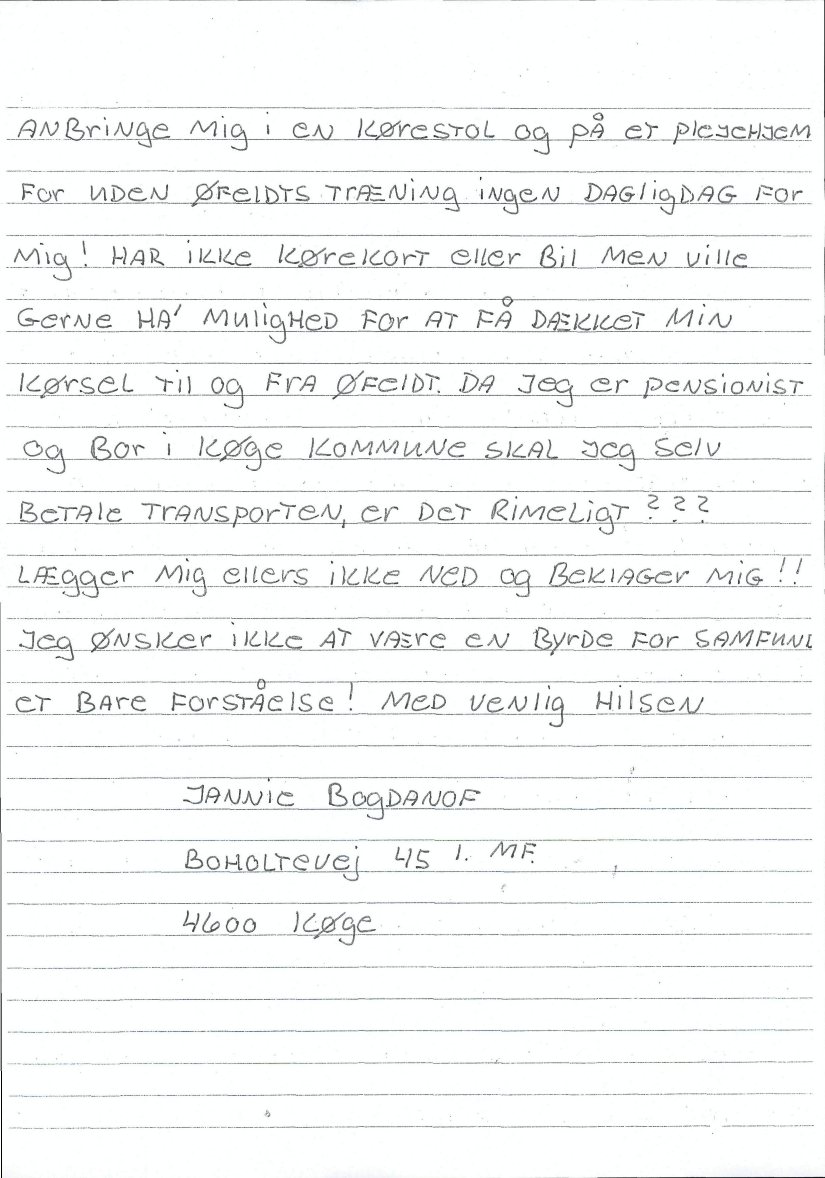 ANBringe Mig i en Kørestol og på et plejehjem
For uden Øfeldts træning ingen dagligdag for
Mig! Har ikke kørekort eller bil men ville
Gerne ha' mulighed for at få dækket min
Kørsel til og fra Øfeldt. Da jeg er pensionist
og bor i Køge Kommune skal jeg selv
Betale transporten, er det rimeligt ???
Lægger mig ellers ikke ned og beklager mig !!
Jeg ønsker ikke at være en byrde for samfund
et bare forståelse! Med venlig hilsen
Jannie Bogdanof
Boholtevej 45 1. MF.
4600 Køge